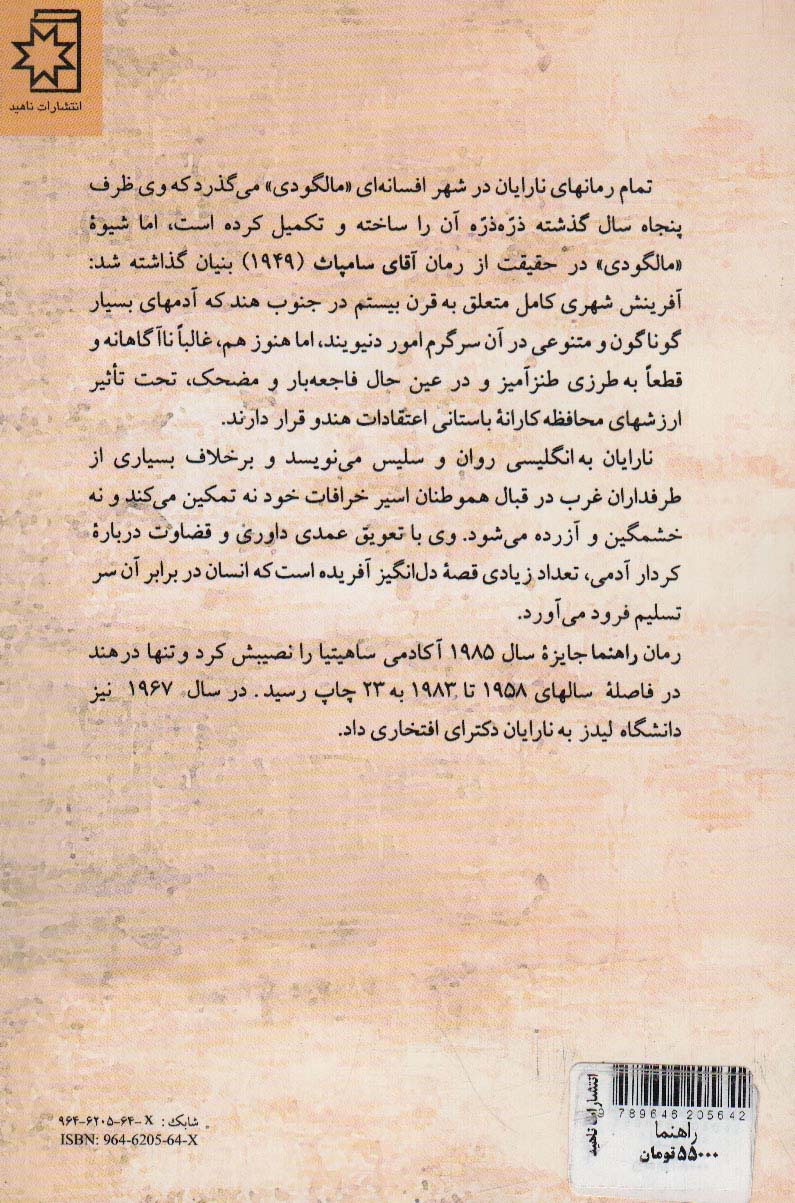 انتشارات ناهید
تمام رمانهای نارایان در شهر افسانه‌ای «مالگودی» می‌گذرد که وی ظرف
پنجاه سال گذشته ذرّه‌ذرّه آن را ساخته و تکمیل کرده است، اما شیوهٔ
«مالگودی» در حقیقت از رمان آقای سامپات (۱۹۴۹) بنیان گذاشته شد:
آفرینش شهری کامل متعلق به قرن بیستم در جنوب هند که آدمهای بسیار
گوناگون و متنوعی در آن سرگرم امور دنیویند، اما هنوز هم، غالباً ناآگاهانه و
قطعاً به طرزی طنزآمیز و در عین حال فاجعه‌بار و مضحک، تحت تأثیر
ارزشهای محافظه کارانهٔ باستانی اعتقادات هندو قرار دارند.
نارایان به انگلیسی روان و سلیس می‌نویسد و برخلاف بسیاری از
طرفداران غرب در قبال هموطنان اسیر خرافات خود نه تمکین می‌کند و نه
خشمگین و آزرده می‌شود. وی با تعویق عمدی داوری و قضاوت دربارهٔ
کردار آدمی، تعداد زیادی قصهٔ دل‌انگیز آفریده است که انسان در برابر آن سر
تسلیم فرود می‌آورد.
رمان راهنما جایزهٔ سال ۱۹۸۵ آکادمی ساهیتیا را نصیبش کرد و تنها در هند
در فاصلهٔ سالهای ۱۹۵۸ تا ۱۹۸۳ به ۲۳ چاپ رسید. در سال ۱۹۶۷ نیز
دانشگاه لیدز به نارایان دکترای افتخاری داد.
شابک: X-۹۶۴-۶۲۰۵-۶۴
ISBN: 964-6205-64-X
انتشارات ناهید
9 789646 205642
راهنما
۵۵۰۰۰ تومان